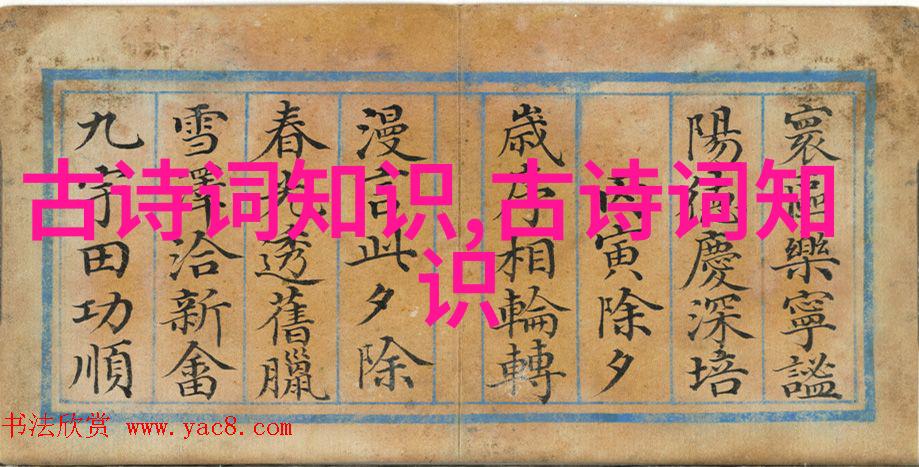 古诗词知识,古诗词知
识
寰樂寧謐
陽慶深培
丙寅除夕
歲序相輪轉
漫言此夕除
春光透舊臘
雪澤洽新畬
九田功順
书法欣赏 www.yac8.com